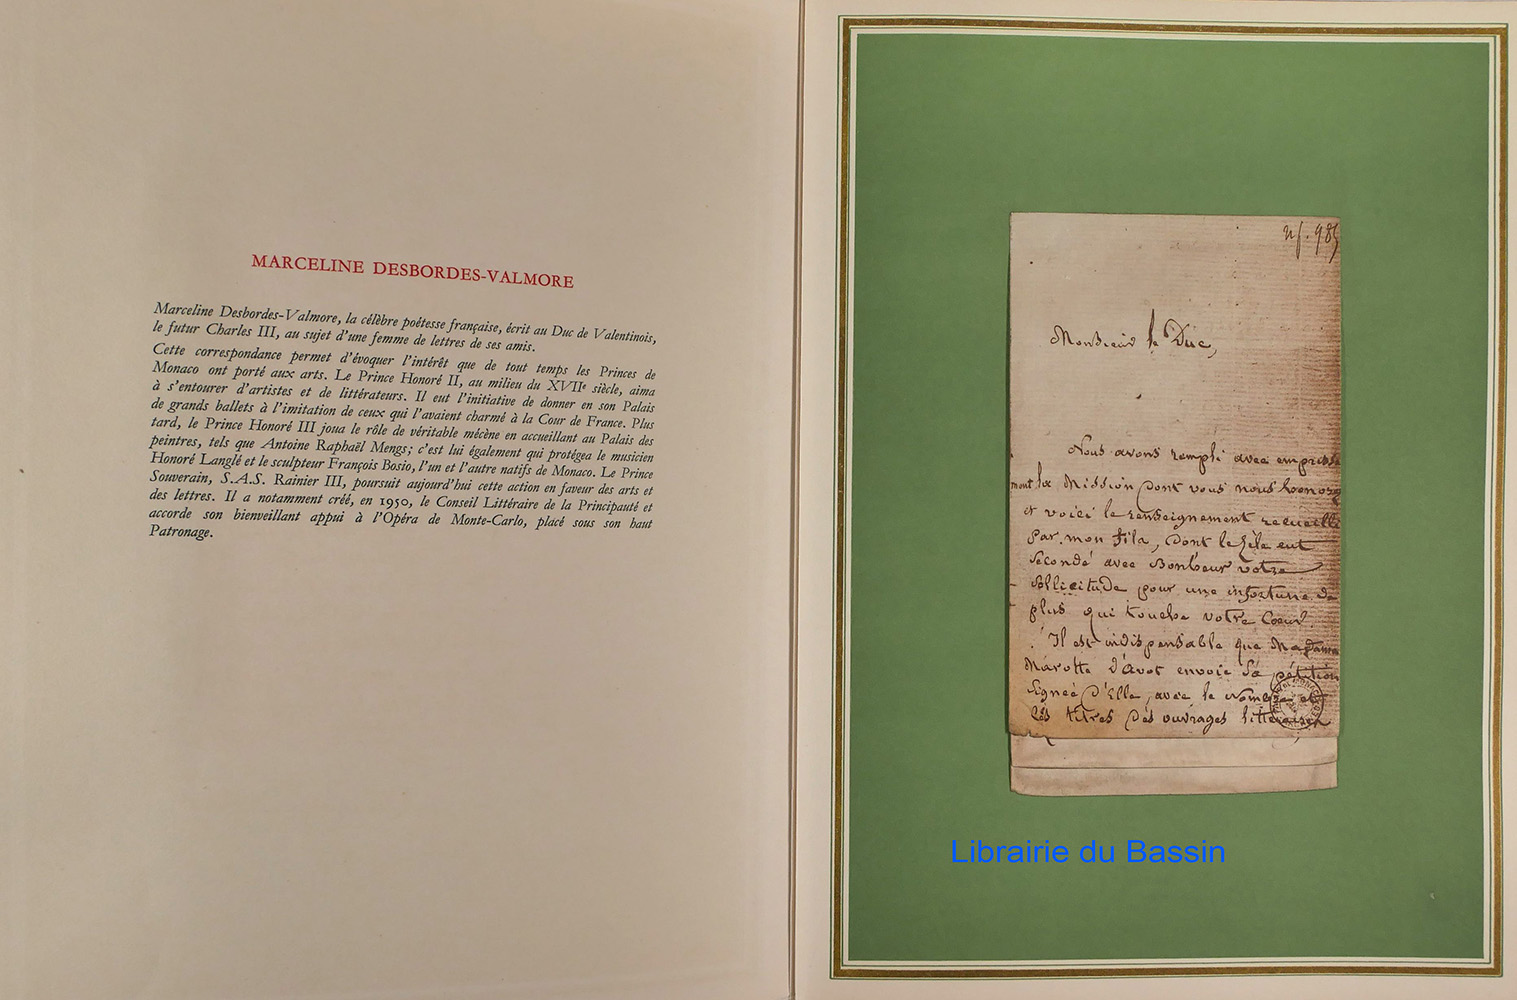 MARCELINE DESBORDES-VALMORE
Marceline Desbordes-Valmore, la célèbre poétesse française, écrit au Duc de Valentinois,
le futur Charles III, au sujet d'une femme de lettres de ses amis.
Cette correspondance permet d'évoquer l'intérêt que de tout temps les Princes de
Monaco ont porté aux arts. Le Prince Honoré II, au milieu du XVIIe siècle, aima
à s'entourer d'artistes et de littérateurs. Il eut l'initiative de donner en son Palais
de grands ballets à l'imitation de ceux qui l'avaient charmé à la Cour de France. Plus
tard, le Prince Honoré III joua le rôle de véritable mécène en accueillant au Palais des
peintres, tels que Antoine Raphaël Mengs; c'est lui également qui protégea le musicien
Honoré Langlé et le sculpteur François Bosio, l'un et l'autre natifs de Monaco. Le Prince
Souverain, S.A.S. Rainier III, poursuit aujourd'hui cette action en faveur des arts et
des lettres. Il a notamment créé, en 1950, le Conseil Littéraire de la Principauté et
accorde son bienveillant appui à l'Opéra de Monte-Carlo, placé sous son haut
Patronage.
Monsieur le Duc,
Nous avons rempli avec empresse
ment la Mission dont vous nous honorez
et voici le renseignement recueilli
par mon fils, dont le zèle eut
secondé avec Bonheur votre
sollicitude pour une infortune de
plus qui touche votre Coeur.
Il est indispensable que Madame
Marotte d'Avot envoie sa pétition
signée d'Elle, avec le Nombre et
les titres des ouvrages littéraires
Librairie du Bassin